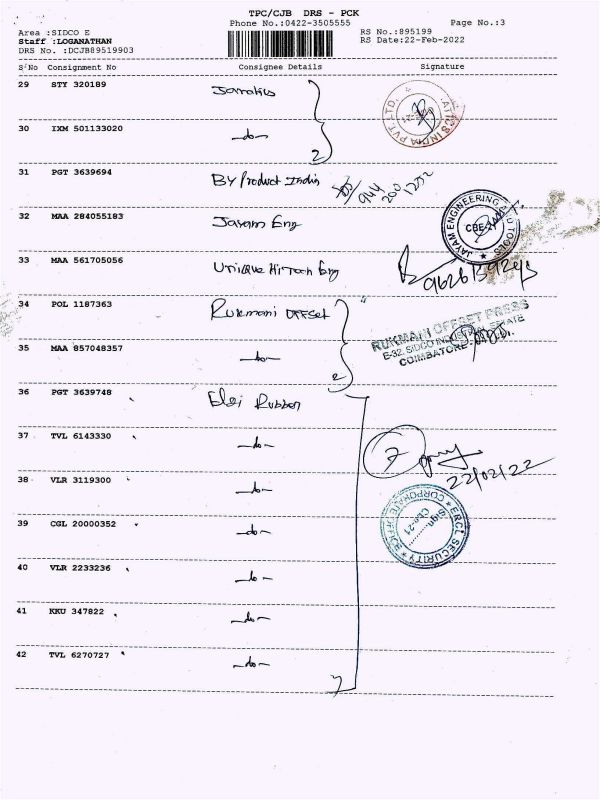 TPC/CJB DRS - PCK
Phone No.:0422-3505555
Page No.:3
Area :SIDCO E
RS No.:895199
Staff :LOGANATHAN
RS Date:22-Feb-2022
DRS No. :DCJB89519903
S'No Consignment No Consignee Details Signature
29 STY 320189
30 IXM 501133020 -do-
2
31 PGT 3639694 BY Product India
32 MAA 284055183 Jayam Eng
JAYAM ENGINEERING AND TOOLS
CBE-21
33 MAA 561705056 Unique Hitech Eng
34 POL 1187363 Rukmani OFFset
RUKMANI OFFSET PRESS
E-32, SIDCO INDUSTRIAL ESTATE
COIMBATORE
35 MAA 857048357 -do-
2
36 PGT 3639748 Elgi Rubber
37 TVL 6143330 -do-
7
22/02/22
38 VLR 3119300 -do-
ERCL SECURITY
CORPORATE OFFICE
Sign
Cbe-21
39 CGL 20000352 -do-
40 VLR 2233236 -do-
41 KKU 347822 -do-
42 TVL 6270727 -do-
7